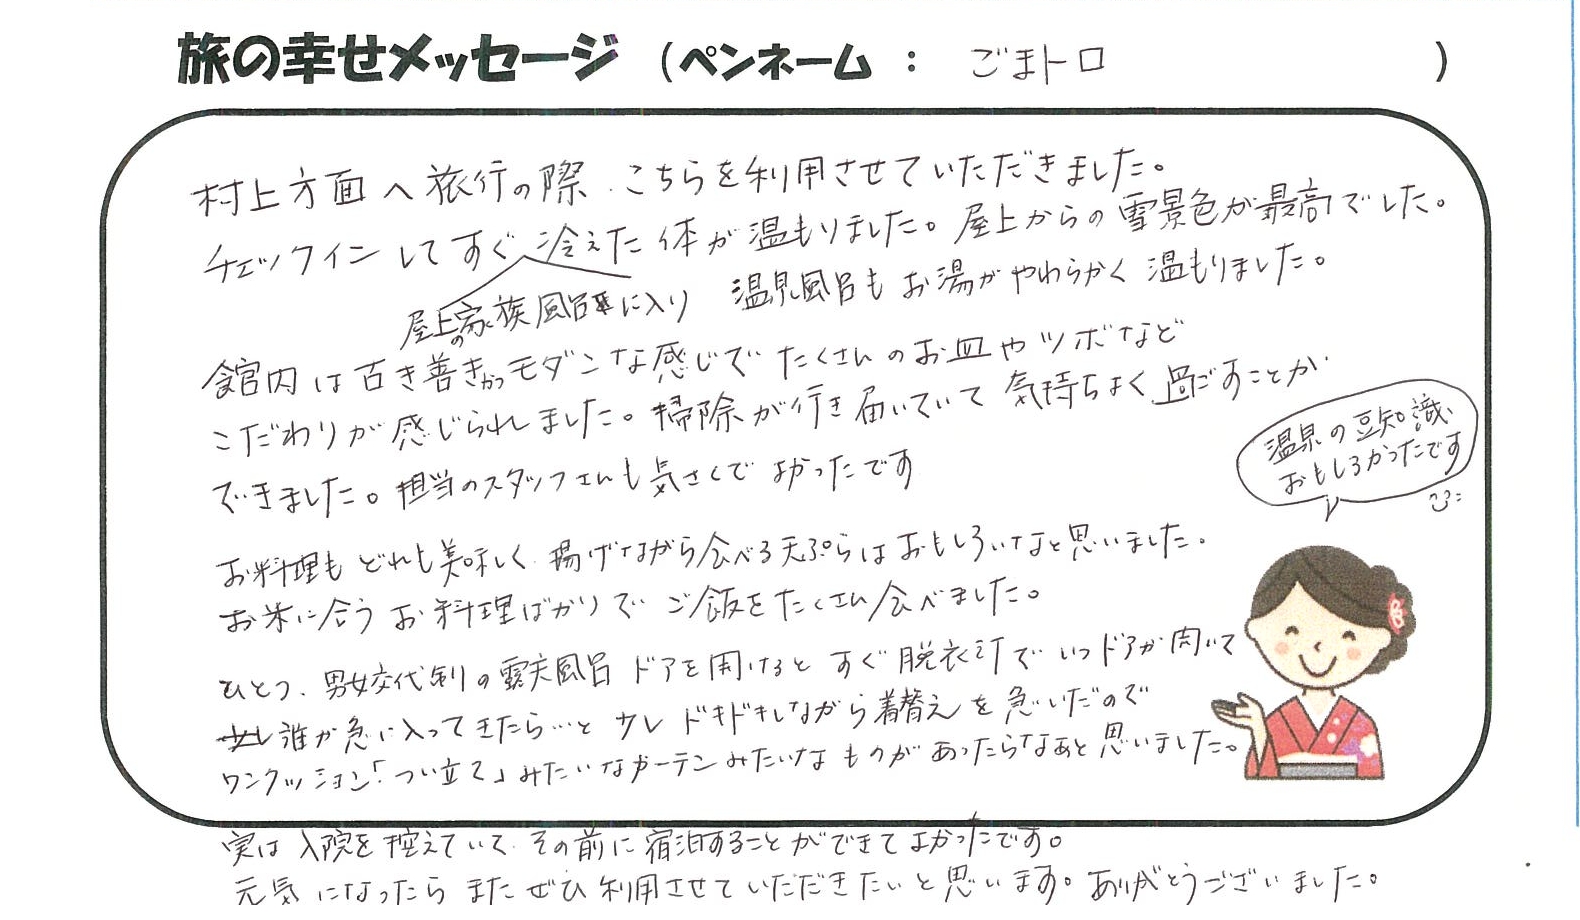 旅の幸せメッセージ (ペンネーム : ごまトロ )
村上方面へ旅行の際、こちらを利用させていただきました。
チェックインしてすぐ 冷えた 体が温もりました。屋上からの雪景色が最高でした。
屋上の家族風呂に入り 温見風呂もお湯がやわらかく温もりました。
館内は古き善きかつモダンな感じで たくさんのお皿やツボなど
こだわりが感じられました。掃除が行き届いていて 気持ちよく過ごすことが
できました。担当のスタッフさんも気さくで よかったです
温泉の豆知識
おもしろかったです
お料理も どれも美味しく、揚げながら食べる天ぷらはおもしろいなと思いました。
お米に合う お料理ばかりで ご飯をたくさん食べました。
ひとつ、男女交代制の露天風呂 ドアを開けると すぐ 脱衣所で いつドアが開いて
少し 誰か急に入ってきたら…と 少し ドキドキしながら着替えを急いだので
ワンクッション「つい立て」みたいなカーテンみたいなものがあったらなぁと思いました。
実は入院を控えていて、その前に宿泊することができてよかったです。
元気になったら またぜひ利用させていただきたいと思います。ありがとうございました。